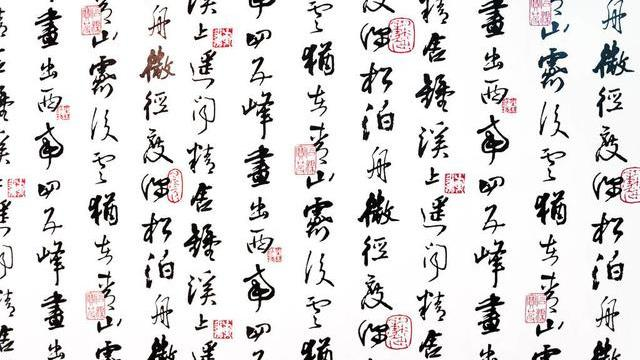 舟微徑度深松泊舟微
山霽後雲猶在青山霽
畫出西南四五峰畫出
精舍鐘溪上遙聞精舍
深松泊舟微徑度深
雲猶在青山霽後雲
南四五峰畫出西南四五
溪上遙聞精舍鐘溪上遙
舟微徑度深松泊舟微
山霽後雲猶在青山霽
畫出西南四五峰畫出